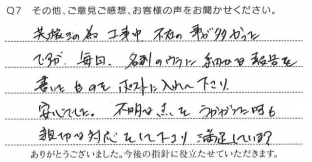 Q7 その他、ご意見ご感想、お客様の声をお聞かせください。
共稼ぎの為 工事中 不在の事が多かった
ですが、毎日、名刺のウラに細かな報告を
書いたものをポストに入れて下さり
安心でした。不明な点をうかがった時も
親切な対応をして下さり満足しています
ありがとうございました。今後の指針に役立たせていただきます。